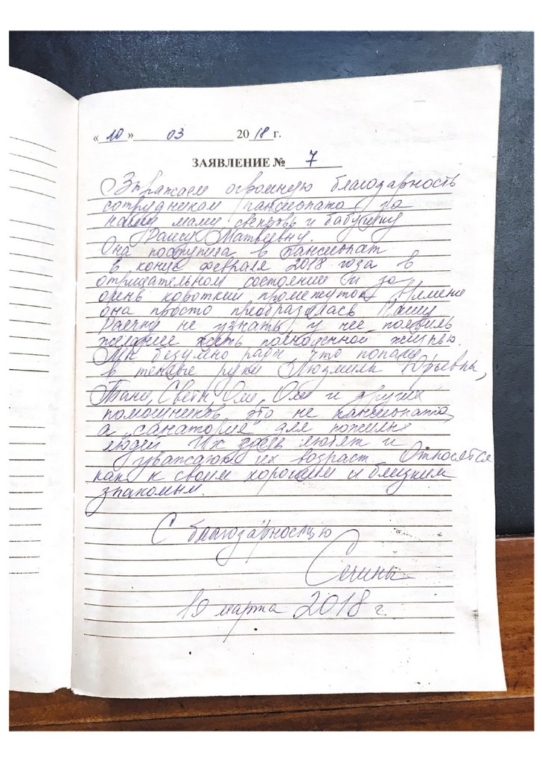 « 10 » 03 2018 г.
ЗАЯВЛЕНИЕ № 7
Выражаем огромную благодарность
сотрудникам пансионата за
нашу маму свекровь и бабушку
Раису Матвеевну.
Она поступила в пансионат
в конце февраля 2018 года в
отрицательном состоянии и за
очень короткий промежуток времени
она просто преобразилась нашу
не узнать, у нее появилось
желание жить полноценной жизнью.
Мы безумно рады что попали
в теплые руки Людмилы Юрьевны,
Тани, Светы Оли, Оли и других
помощников, это не пансионат,
а "санаторий" для пожилых
людей Их здесь любят и
уважают их возраст. Относятся
как к своим хорошим и близким
знакомым.
С благодарностью
10 марта 2018 г.